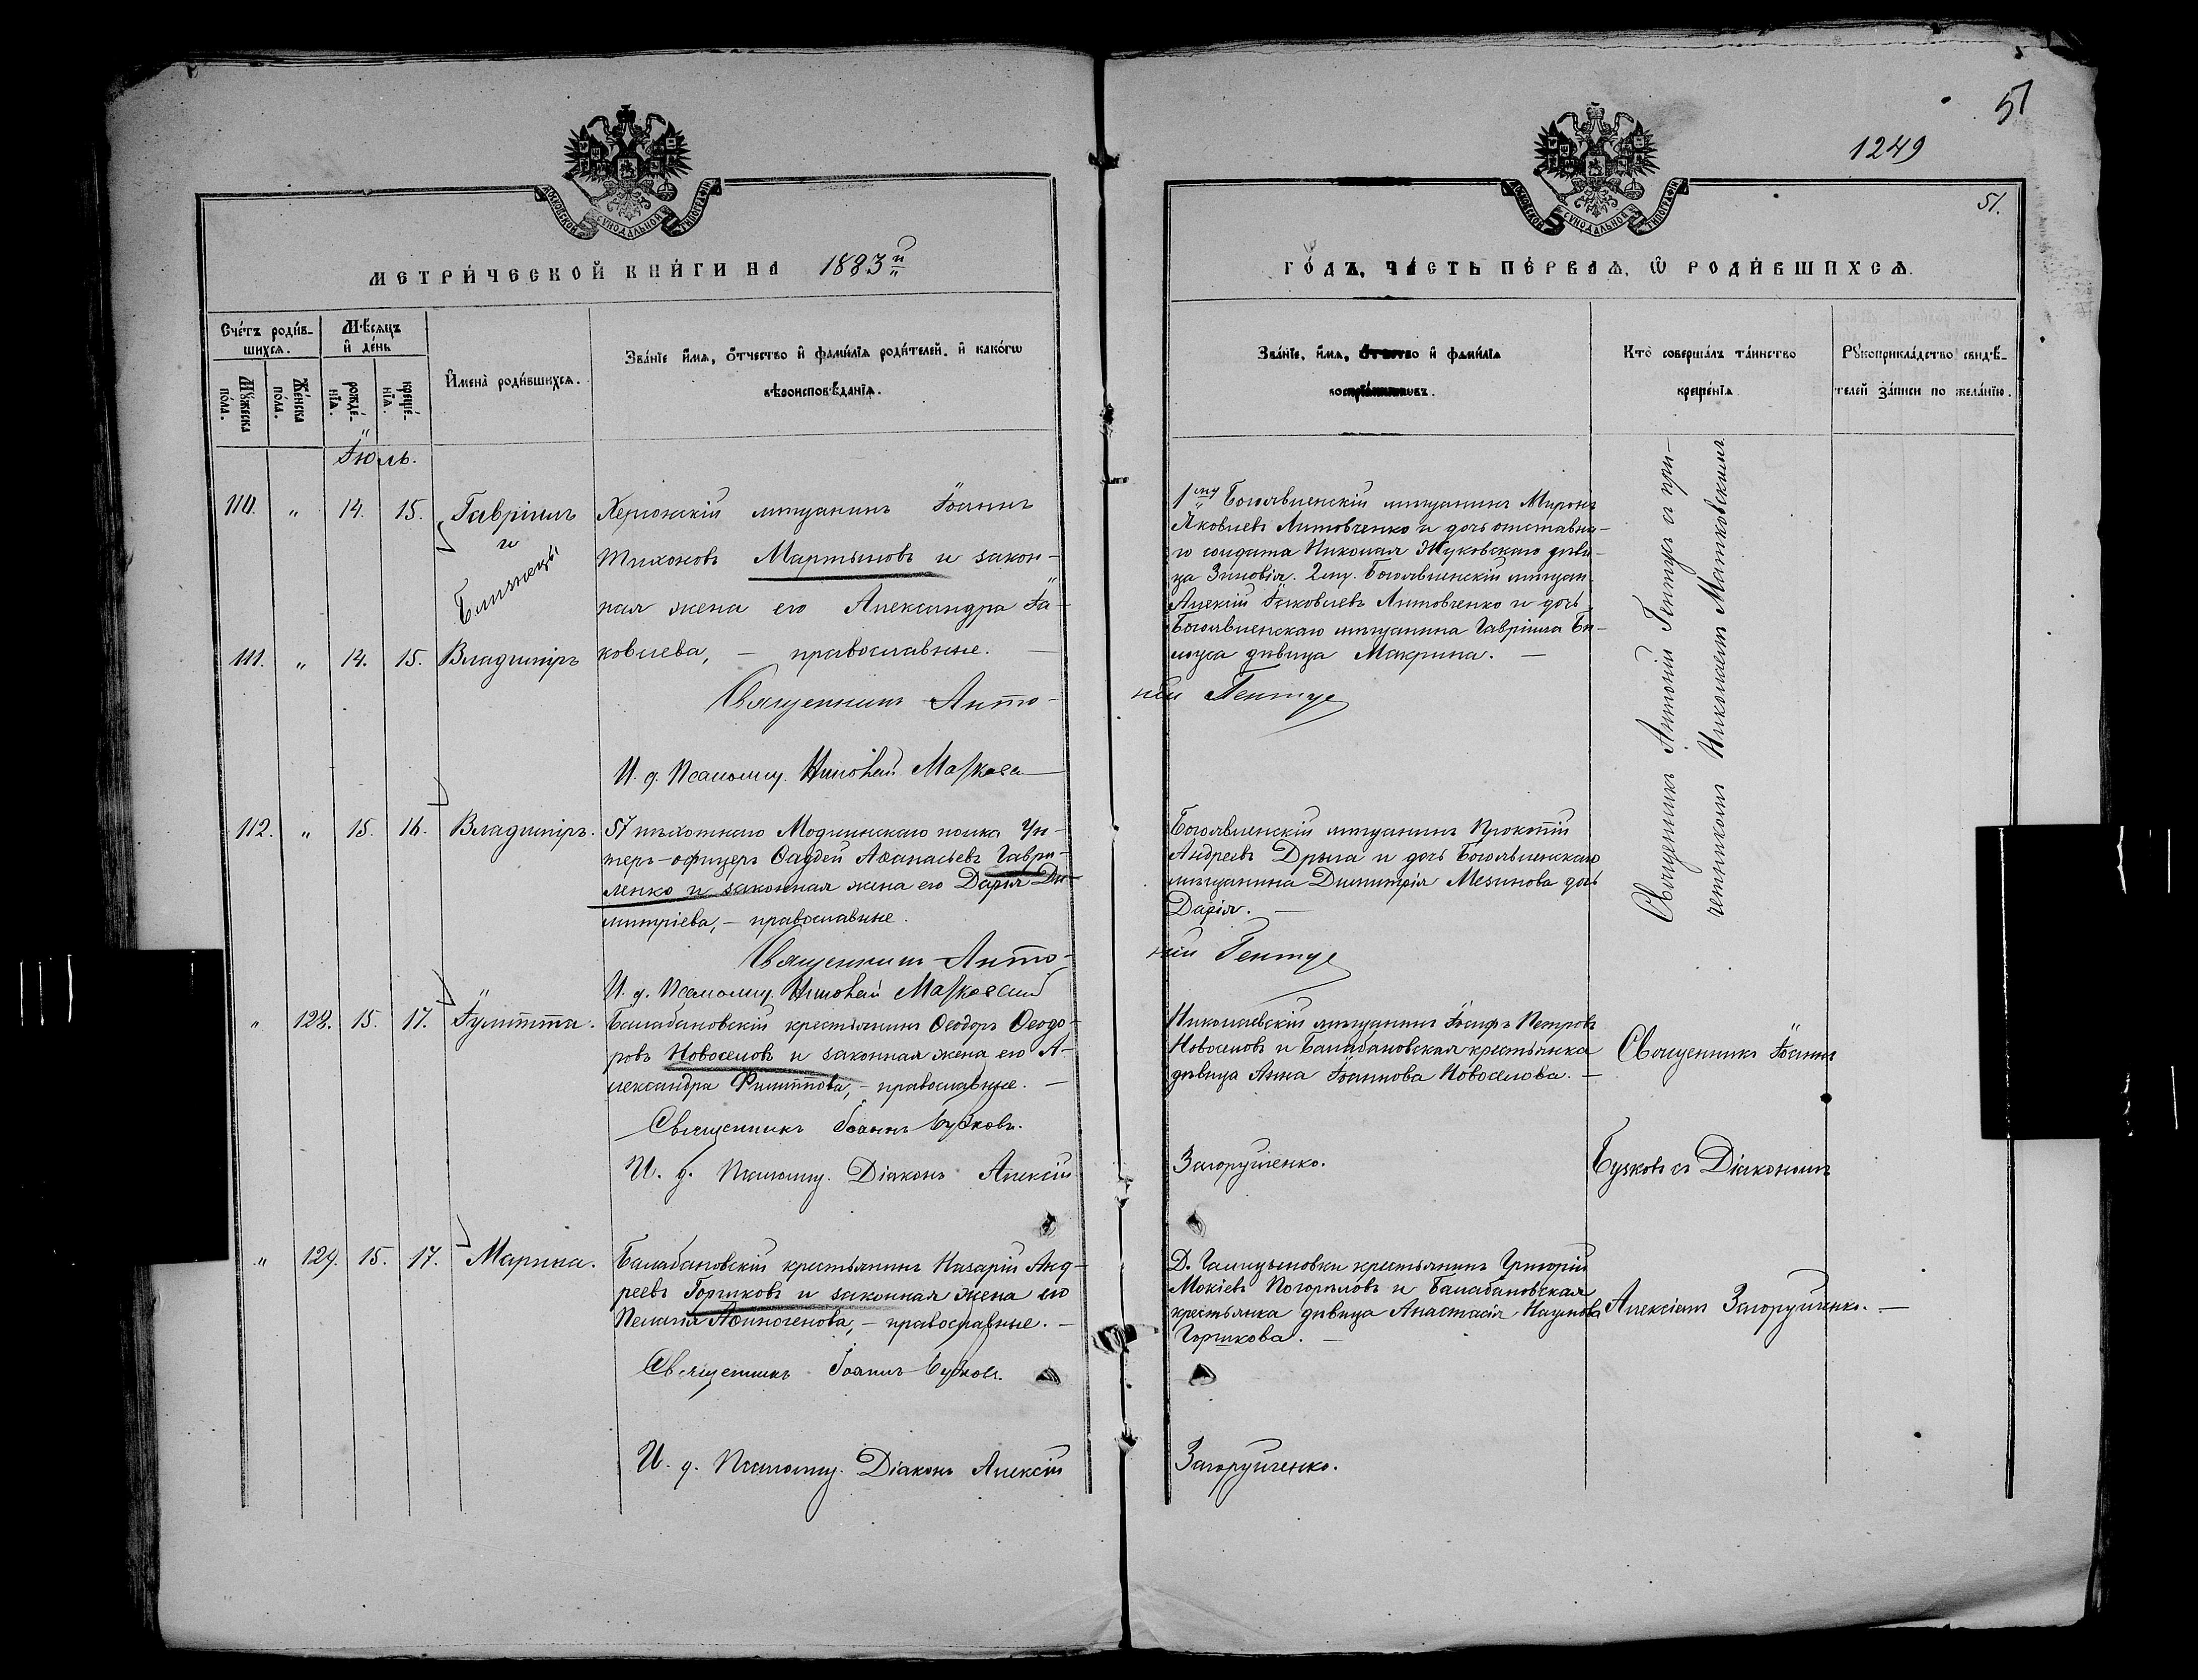 51
1249
51.
МОСКОВСКОЙ СѴНОДАЛЬНОЙ ТИПОГРАФІИ
МОСКОВСКОЙ СѴНОДАЛЬНОЙ ТИПОГРАФІИ
МЕТРИ́ЧЕСКОЙ КНИ́ГИ НА 1883 й
ГО́ДЪ, ЧА́СТЬ ПЕ́РВАѦ, Ѡ РОДИ́ВШИХСѦ.
Сче́тъ роди́в-
шихсѧ.
Мꙋ́жеска
по́ла.
Же́нска
по́ла.
Мѣ́сѧцъ
и҆ де́нь
рожде́-
нїѧ.
креще́-
нїѧ.
И҆мена̀ роди́вшихсѧ.
Зва́нїе и҆́мѧ, ѻ҆́тчество и҆ фами́лїѧ роди́телей, и҆ како́гѡ
вѣроисповѣ́данїѧ.
Зва́нїе, и҆́мѧ, ѻ҆́тчество и҆ фами́лїѧ
воспрїе́мниковъ.
Кто̀ соверша́лъ та́инство
креще́нїѧ
Рꙋкоприкла́дство свидѣ́-
телей за́писи по жела́нїю.
Іюль.
110. " 14. 15. Гавріилъ
и
Близнецы
111. " 14. 15. Владиміръ
Херсонскій мѣщанинъ Іоаннъ
Тихоновъ Мартыновъ и закон-
ная жена его Александра Іа-
ковлева, — православные. —
Священникъ Анто-
ній Гентуе
И. д. Псаломщ. Николай
1му Богоявленскій мѣщанинъ Миронъ
Яковлевъ Литовченко и дочь отставна-
го солдата Николая Жуковскаго дѣви-
ца Зиновія. 2му. Богоявленскій мѣщан.
Алексій Іаковлевъ Литовченко и дочь
Богоявленскаго мѣщанина Гавріила Бѣ-
лоуса дѣвица Макрина. —
Священникъ Антоній Гентуе съ при-
четникомъ Николаемъ Матковскимъ
112. " 15. 16. Владиміръ.
57 пѣхотнаго Модлинскаго полка Ун-
теръ-офицеръ Ѳаддей Аѳанасьевъ Гаври-
ленко и законная жена его Дарія Ди-
митріева, — православные.
Священникъ Анто-
ній Гентуе
И. д. Псаломщ. Николай
Богоявленскій мѣщанинъ Прокопій
Андреевъ Дрыга и дочь Богоявленскаго
мѣщанина Димитрія Мезинова дочь
Дарія. —
" 128. 15. 17. Іулитта.
Балабановскій крестьянинъ Ѳеодоръ Ѳеодо-
ровъ Новоселовъ и законная жена его А-
лександра Филиппова, — православные. —
Священникъ Іоаннъ Бузковъ.
И. д. Псаломщ. Діаконъ Алексій
Загорульченко.
Николаевскій мѣщанинъ Іосифъ Петровъ
Новоселовъ и Балабановская крестьянка
дѣвица Анна Іоаннова Новоселова. —
Священникъ Іоаннъ
Бузковъ съ Діакономъ
" 129. 15. 17. Марина.
Балабановскій крестьянинъ Назарій Анд-
реевъ Горшковъ и законная жена его
Пелагія Аѳиногенова, — православные. —
Священникъ Іоаннъ Бузковъ.
И. д. Псаломщ. Діаконъ Алексій
Загорульченко.
Д. крестьянинъ Григорій
Мокіевъ Погорѣловъ и Балабановская
крестьянка дѣвица Анастасія Наумова
Горшкова. —
Алексіемъ Загорульченко. —